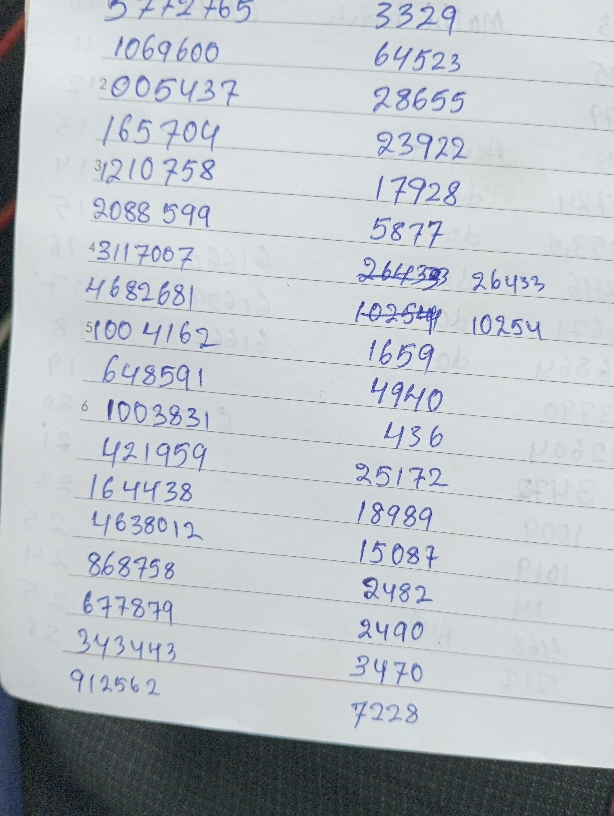 5772765 3329
1069600 64523
2005437 28655
165704 23922
3 1210758 17928
2088599 5877
4 3117007 26433 26433
4682681 10254 10254
5 1004162 1659
648591 4940
6 1003831 436
421959 25172
164438 18989
4638012 15087
868758 2482
677879 2490
343443 3470
912562 7228